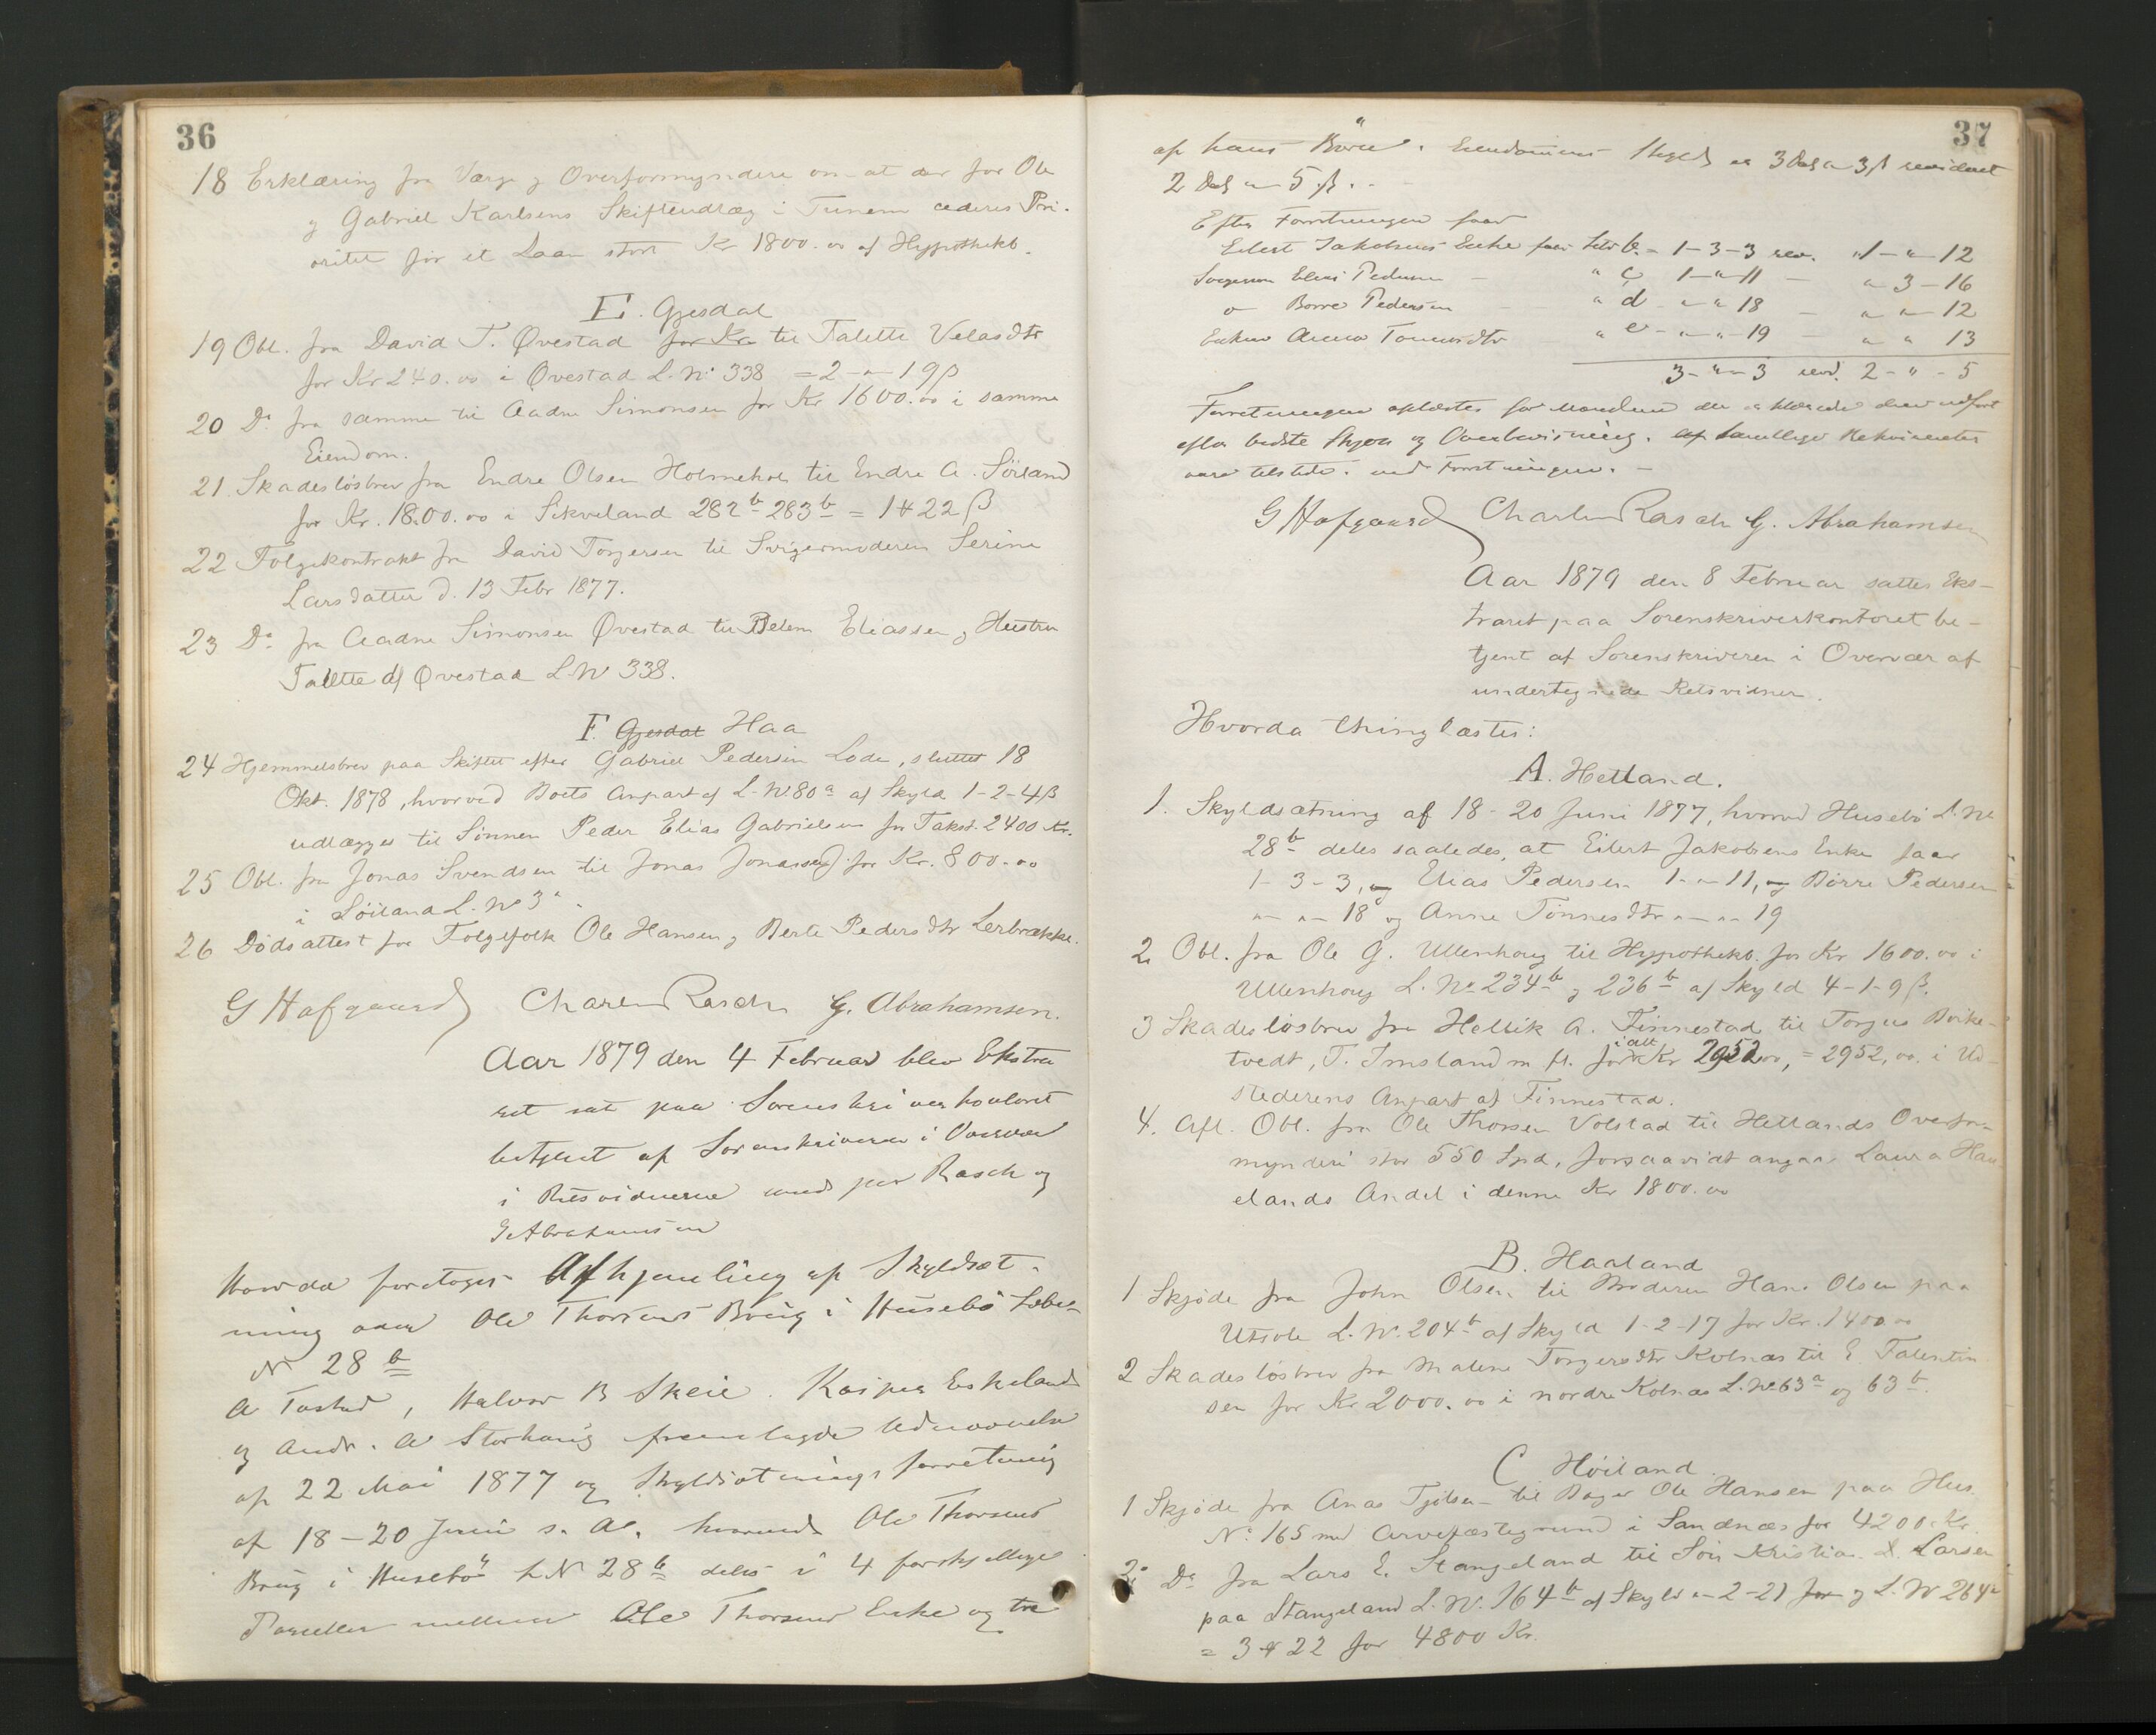 36
18 Erklæring fra Værge og Overformyndere om at der for Ole
og Gabriel Karlsens Skifteudlæg i Tunem cederes Pri-
oritet for et Laan stort Kr 1800.00 af Hypothekb.
E. Gjesdal
19 Obl. fra David T. Øvestad for Kr til Talette Velasdtr
for Kr 240.00 i Øvestad L. No 338 = 2 - " - 19 β
20 Do fra samme til Aadne Simonsen for Kr 1600.00 i samme
Eiendom.
21 Skadesløsbrev fra Endre Olsen Holmehol til Endre A. Sörland
for Kr. 1800.00 i Sikveland 282 b 283 b = 1 22 β
22 Folgekontrakt fra David Torgersen til Svigermoderen Serine
Larsdatter d. 13 Febr 1877.
23 Do fra Aadne Simonsen Øvestad til Eliassen og Hustru
Talette af Øvestad L. No 338.
F. Gjesdal Haa
24 Hjemmelsbrev paa Skiftet efter Gabriel Pedersen Lode, sluttet 18
Okt. 1878, hvorved Boets Anpart af L. No. 80 a af Skyld 1-2-4 β
udlægges til Sønnen Peder Elias Gabrielsen for Takst. 2400 Kr.
25 Obl. fra Jonas Svendsen til Jonas Jonassen for Kr. 800.00
i Söiland L. No 3 a.
26 Dödsattest for Folgefolk Ole Hansen og Berte Pedersdtr Lerbrække.
G Hafgaard Charles Rasch G. Abrahamsen.
Aar 1879 den 4 Februar blev Ekstra
ret sat paa Sorenskriverkontoret
betjent af Sorenskriveren i Overvær
i Retsvidnerne Rasch og
G Abrahamsen
Hvorda foretoges Afhjemling af Skyldsæt-
ning over Ole Thorsens Brug i Husebö Löbe-
N 28 b
A Tasted, Halvor B Skeie. Kasper Eskeland
og Andr. A Storhaug fremlagde Udnævnelse
af 22 Mai 1877 og Skyldsætningsforretning
af 18-20 Juni s. A., hvorved Ole Thorsens
Brug i Husebö L N 28 b deles i 4 forskjellige
Parceller mellem Ole Thorsens Enke og tre
37
af hans Börn. Eiendommens Skyld er 3 Dal " 3 β revideret
2 Dal " 5 β.
Efter Forretningen faar
Eilert Jakobsens Enke faar Litr b. - 1-3-3 rev. "1-"-12
Svigersøn Elias Pedersen - " c 1-"-11 - "-3-16
o Børre Pedersen - " d - "-"-18 - "-"-12
Enken Anna Tønnesdtr " e - "-"-19 - " " 13
3-"-3 revd. 2-"-5
Forretningen oplæstes for Mændene der erklærede den udført
efter bedste Skjøn og Overbevisning. Af samtlige Rekvirenter
være tilstede ved Forretningen. -
G Hafgaard Charles Rasch G. Abrahamsen
Aar 1879 den 8 Februar sattes Eks-
traret paa Sorenskriverkontoret be-
tjent af Sorenskriveren i Overvær af
undertegnede Retsvidner.
Hvorda thinglæstes:
A. Hetland.
1. Skyldsætning af 18-20 Juni 1877, hvorved Husebö L. No
28 b deles saaledes, at Eilert Jakobsens Enke faar
1-3-3, og Elias Pedersen 1-"-11, og Börre Pedersen
"-"-18 og Anne Tönnesdtr "-"-19
2 Obl. fra Ole G. Ullenhaug til Hypothekb. for Kr 1600.00 i
Ullenhaug L. No 234 b og 236 b af Skyld 4-1-9 β.
3 Skadeslösbrev fra Hellik A. Finnestad til Torger Böike-
tvedt, T. Imsland m fl. for i alt Kr 2952,00, = 2952,00. i Ud-
stederens Anpart af Finnestad.
4. Afl. Obl. fra Ole Thorsen Volstad til Hetlands Overfor-
mynderi stor 550 Spd, forsaavidt angaar Laura Haa
elands Andel i denne Kr 1800.00
B. Haaland
1 Skjöde fra John Olsen til Broderen Hans Olsen paa
Utsole L. No. 204 b af Skyld 1-2-17 for Kr. 1400.00
2 Skadeslösbrev fra Malene Torgersdtr Kolnæs til E. Talentin
sen for Kr 2000.00 i nordre Kolnæs L. No 63 a og 63 b.
C Höiland.
1 Skjöde fra Anas Tjölsen til Bager Ole Hansen paa Hus
No 165 med Arvefæstegrund i Sandnæs for 4200 Kr
2 Do fra Lars E. Stangeland til Sön Kristian L. Larsen
paa Stangeland L. No. 164 b af Skyld "-2-21 for og L. No 264 a
= 3 " 22 for 4800 Kr.